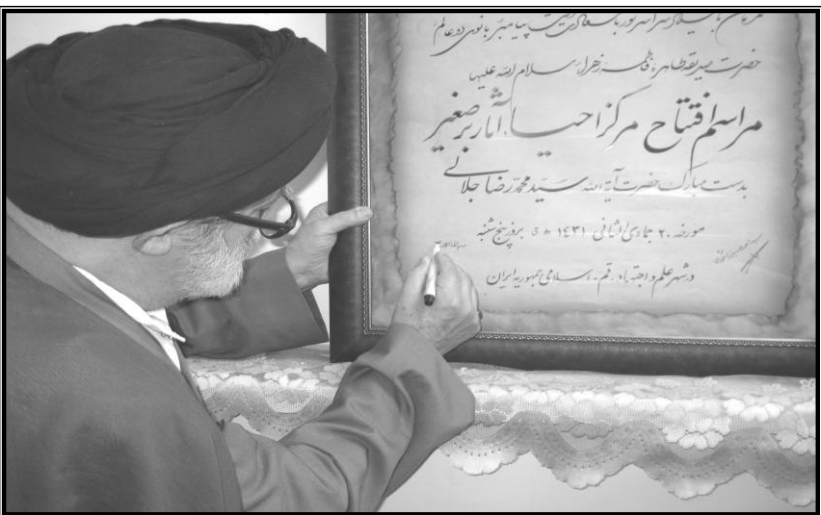 همزمان با میلاد سراسر نور با سعادت دخت پیامبر بانوی دو عالم
حضرت صدیقه طاهره فاطمه زهرا سلام الله علیها
مراسم افتتاح مرکز احیاء آثار برصغیر
بدست مبارک حضرت آیة الله سید محمدرضا جلالی
مورخه ۲۰ جمادی الثانی ۱۴۳۱ ه ق بروز پنج شنبه
در شهر علم و اجتهاد، قم، اسلامی جمهوریه ایران